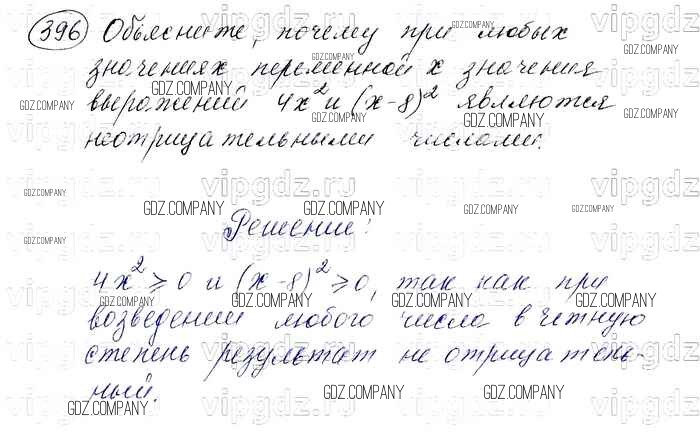 396 Объясните, почему при любых
значениях переменной x значения
выражений 4x² и (x-8)² являются
неотрицательными числами.
Решение:
4x² ⩾ 0 и (x-8)² ⩾ 0, так как при
возведении любого числа в четную
степень результат не отрицатель-
ный.